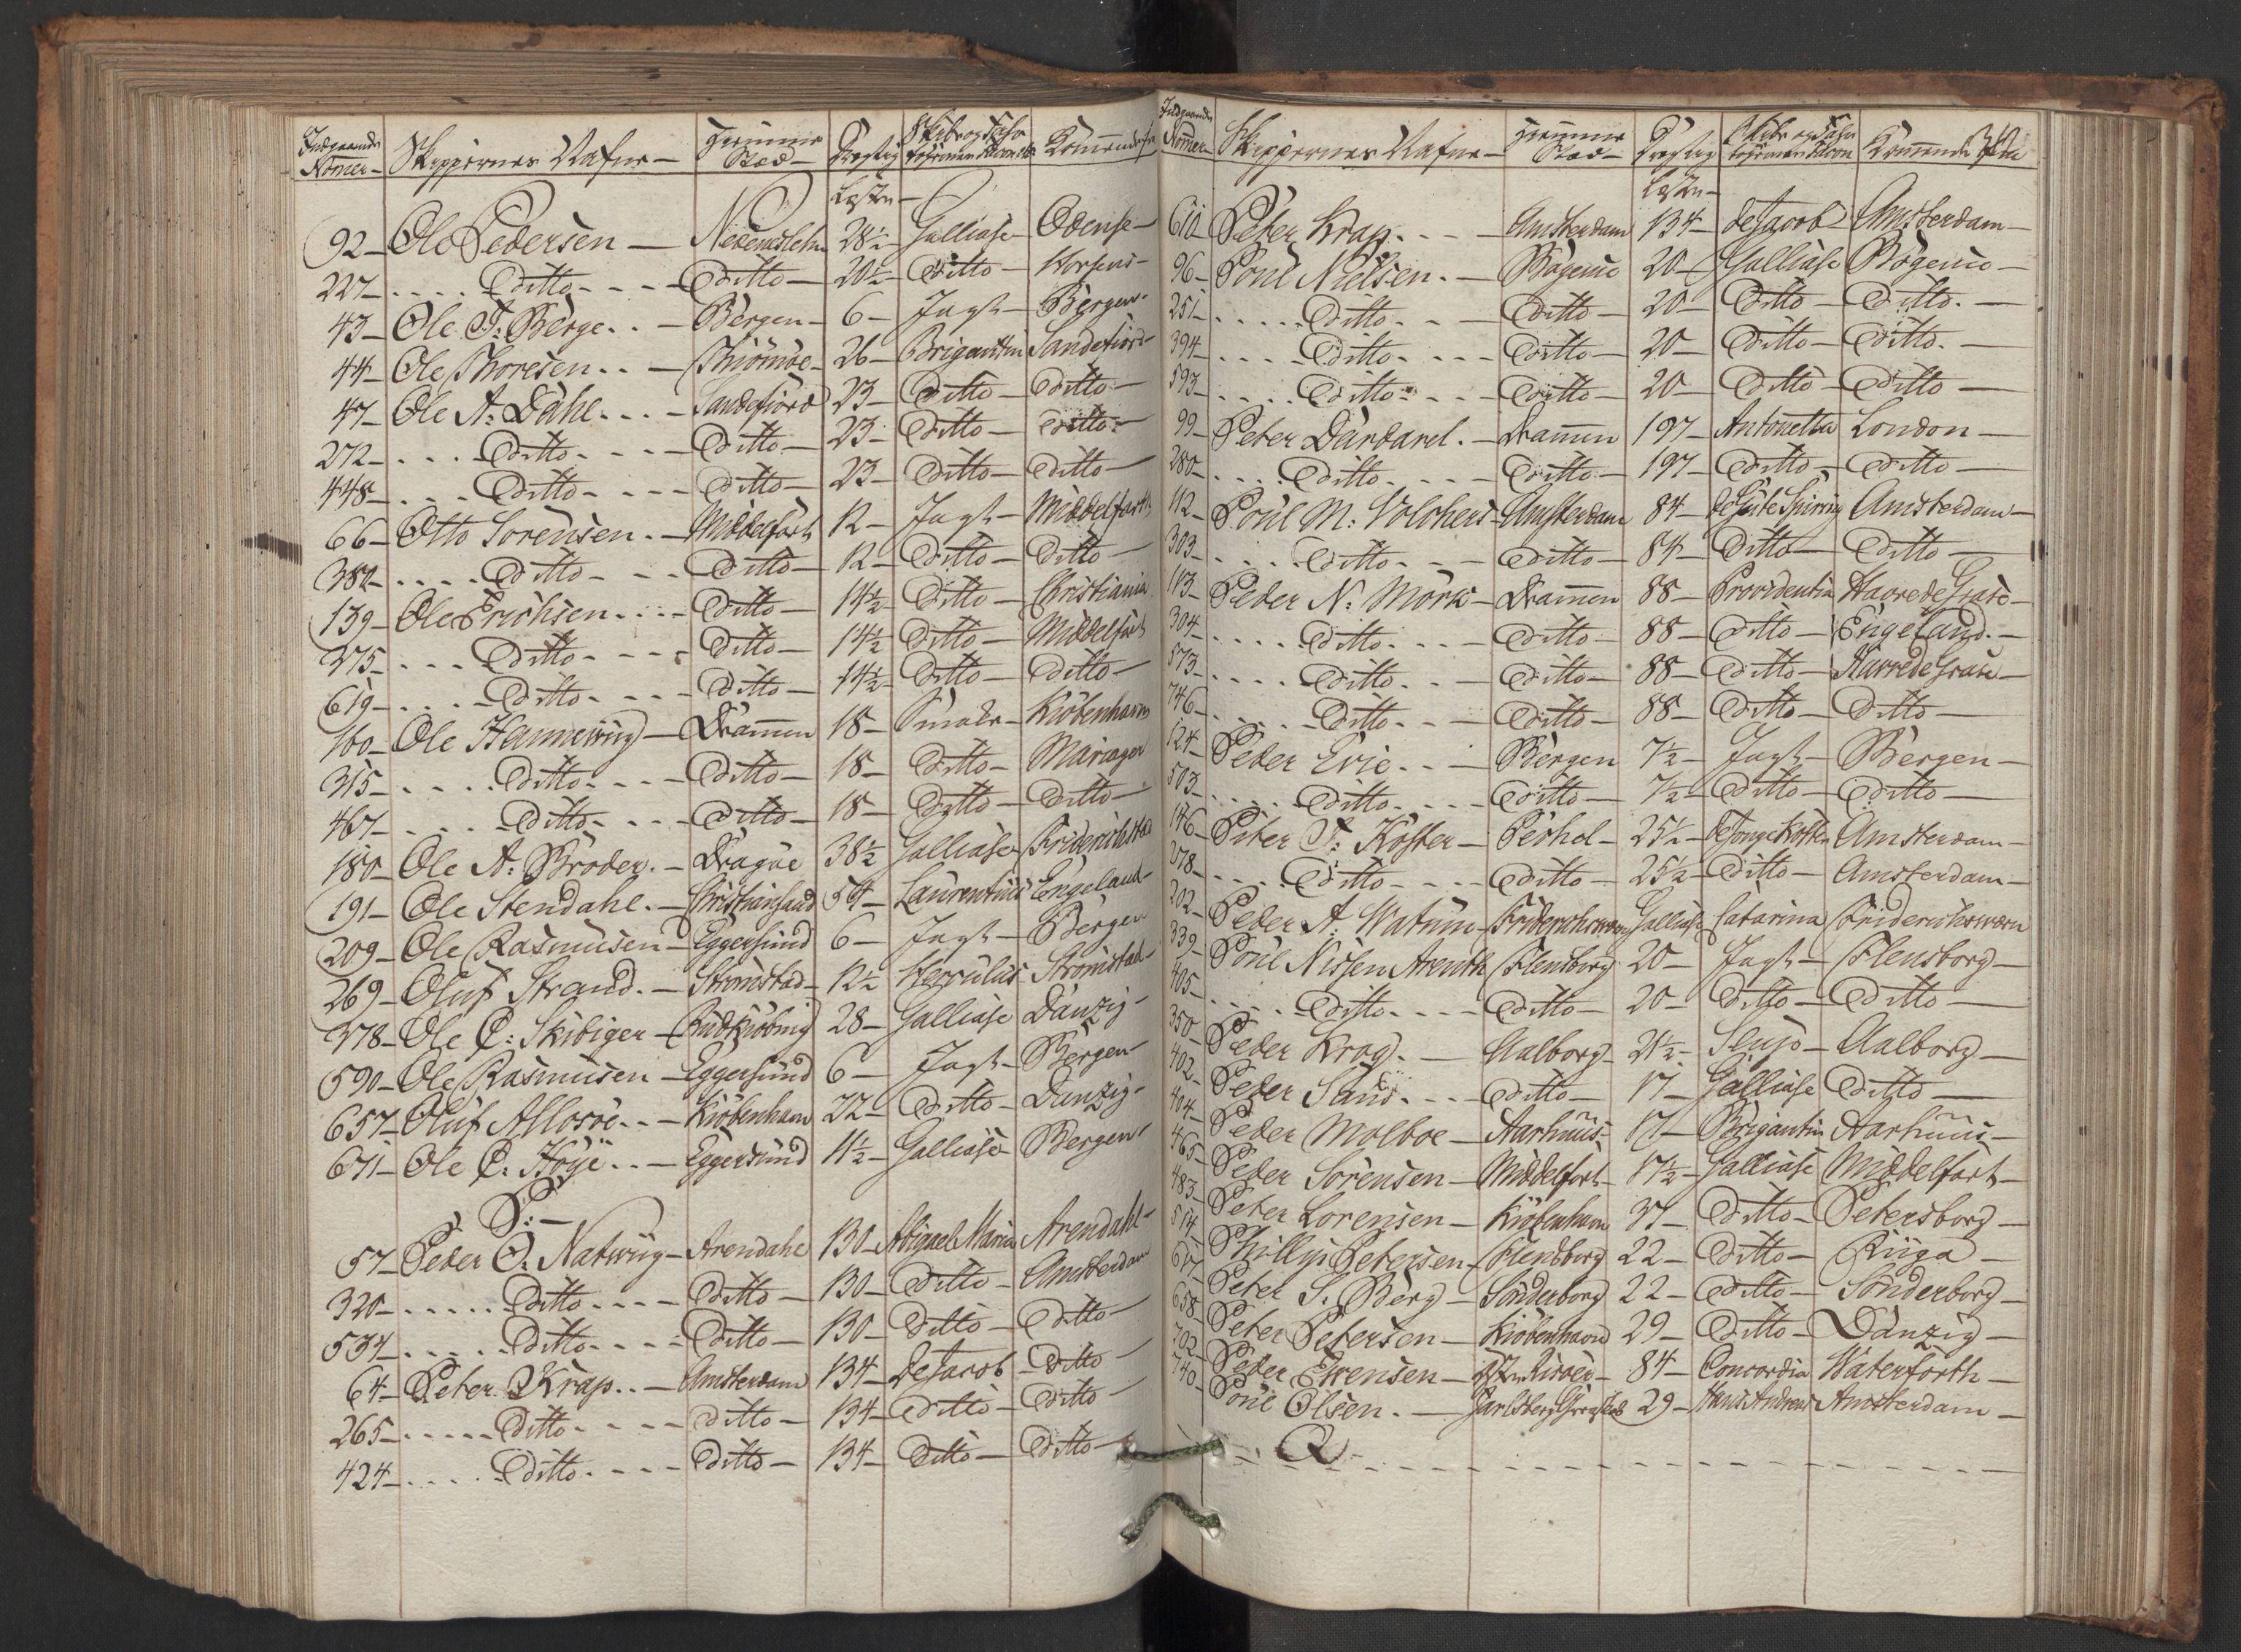 Indgaaende Nomer — Skippernes Nafne — Hiemme Stæd — Drægtig Kommende fra
Læster —
92 — Ole Pedersen — 28½ — Galliase — Odense —
227 — Ditto — Ditto — 20½ — Ditto — Horsens —
43 — Ole T: Berge — Bergen — 6 — Jagt — Bergen —
44 — Ole Thoresen — 26 — Brigantin Sandefiord —
47 — Ole A: Dahl — Sandefiord 23 — Ditto — Ditto —
272 — Ditto — Ditto — 23 — Ditto — Ditto —
448 — Ditto — Ditto — 23 — Ditto — Ditto —
66 — Otto Sørensen — Middelfart 12 — Jagt — Middelfarth
382 — Ditto — Ditto — 12 — Ditto — Ditto —
139 — Ole Erichsen — Ditto — 14½ — Ditto — Christiania
375 — Ditto — Ditto — 14½ — Ditto — Middelfart
619 — Ditto — Ditto — 14½ — Ditto — Ditto —
160 — Ole Hannevig — Dramen 18 — Smakr — Kiöbenhavn
315 — Ditto — Ditto — 18 — Ditto — Mariager
467 — Ditto — Ditto — 18 — Ditto — Ditto —
180 — Ole A: Broder — Dragøe 38½ Galliase Friderichstad
191 — Ole Stendahl — Christiansand 54 — Laurentius Engeland —
209 — Ole Rasmusen — Eggersund 6 — Jagt — Bergen
269 — Oluf Strand — Strömstad — 12½ Herculus Strömstad —
378 — Ole C: Skibiger — Rudkiöbing 28 — Galliase Danzig —
590 — Ole Rasmusen — Eggersund 6 — Jagt — Bergen —
657 — Oluf — Kiöbenhavn 22 — Ditto — Danzig —
671 — Ole C: Höye — Eggersund 11½ — Galliase Bergen
P: —
57 — Peder O: Natwiig — Arendahl 130 — Abigael Maria Arendahl —
320 — Ditto — Ditto — 130 — Ditto — Amsterdam
534 — Ditto — Ditto — 130 — Ditto — Ditto —
64 — Peter Krap — Amsterdam 134 — De Jacob — Ditto —
265 — Ditto — Ditto — 134 — Ditto — Ditto —
424 — Ditto — Ditto — 134 — Ditto — Ditto —
Indgaaende Nomer — Skippernes Nafne — Hiemme Stæd — Drægtig Kommende fra
Læster —
610 — Peter Krap — Amsterdam 134 — de Jacob — Amsterdam —
96 — Poul Nielsen — Bogense 20 — Galliase Bogense —
251 — Ditto — Ditto — 20 — Ditto — Ditto —
394 — Ditto — Ditto — 20 — Ditto — Ditto —
593 — Ditto — Ditto — 20 — Ditto — Ditto —
99 — Peter — Dramen 197 — Antonetta London —
280 — Ditto — Ditto — 197 — Ditto — Ditto —
112 — Poul M: Volchers — Amsterdam 84 — Amsterdam —
303 — Ditto — Ditto — 84 — Ditto — Ditto —
113 — Peder N: Mörk — Dramen 88 — Providentia Havre de Grace —
304 — Ditto — Ditto — 88 — Ditto — Engeland —
573 — Ditto — Ditto — 88 — Ditto — Havre de Grace —
746 — Ditto — Ditto — 88 — Ditto — Ditto —
124 — Peder Evie — Bergen 7½ — Jagt — Bergen —
503 — Ditto — Ditto — 7½ — Ditto — Ditto —
146 — Piter T: Koster — 25½ — Amsterdam —
278 — Ditto — Ditto — 25½ — Ditto — Amsterdam —
202 — Peder A: Watum — Friderichsværn Galliase Catarina Friderichsværn
339 — Poul Nissen Arenth Flensborg 20 — Jagt — Flensborg —
405 — Ditto — Ditto — 20 — Ditto — Ditto —
350 — Peder Krag — Aalborg — 21½ — Slup — Aalborg —
402 — Peder — Ditto — 17 — Galliase Ditto —
404 — Peder Molboe — Aarhuus — 17 — Brigantin Aarhuus —
465 — Peder Sörensen — Middelfart — 17½ — Galliase Middelfart —
483 — Peter Lorensen — Kiöbenhavn 37 — Ditto — Petersborg —
514 — Phillip Petersen — Flensborg 22 — Ditto — Riiga —
617 — Peter S. Berg — Sönderborg 22 — Ditto — Sönderborg —
658 — Peter Petersen — Kiöbenhavn 29 — Ditto — Danzig —
702 — Peder Evensen — 84 — Concordia Waterforth —
740 — Poul Olsen — 29 — Hans Andreas Amsterdam —
Q —